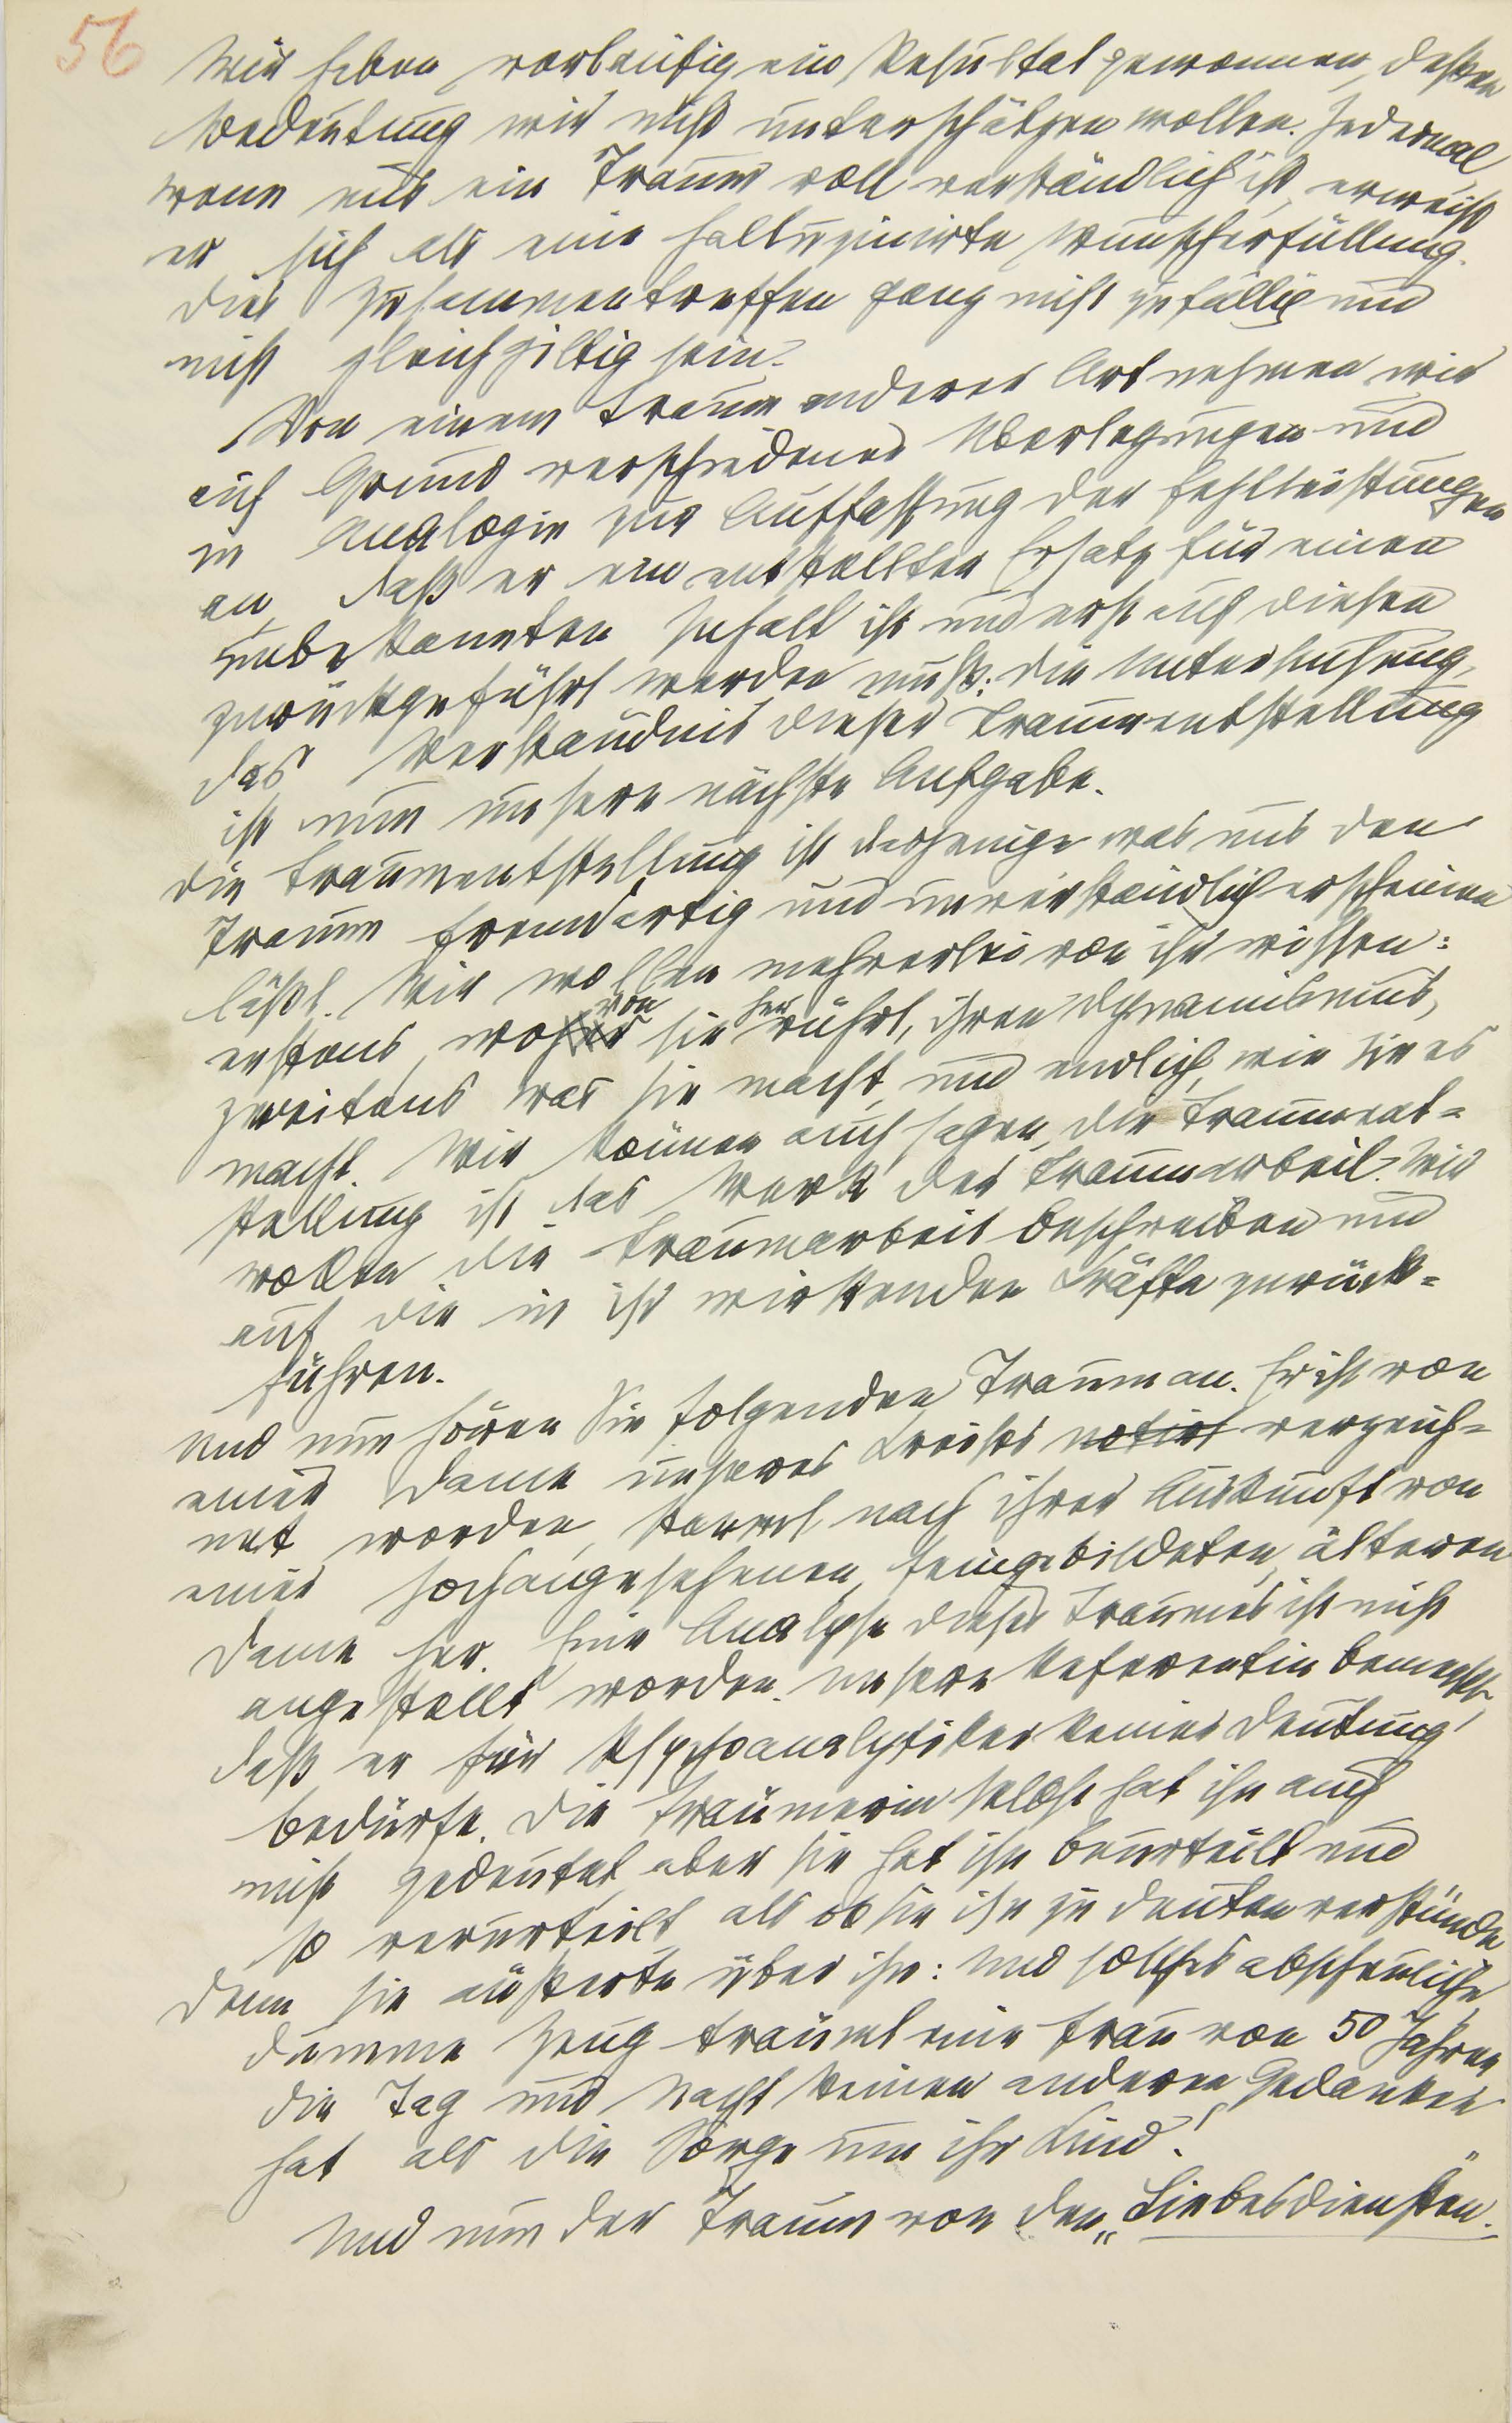 56
Wir haben vorläufig ein Resultat gewonnen, dessen
Bedeutung wir nicht unterschätzen wollen. Jedesmal
wenn uns ein Traum voll verständlich ist, erweist
er sich als eine halluzinirte Wunscherfüllung.
Dies Zusammentreffen kann nicht zufällig und
nicht gleichgiltig sein.
Von einem Traum anderer Art nehmen wir
auf Grund verschiedener Überlegungen und
in Analogie zur Auffassung der Fehlleistungen
an, daß er ein entstellter Ersatz für einen
unbekannten Inhalt ist und erst auf diesen
zurückgeführt werden muß. Die Untersuchung,
das Verständnis dieser Traumentstellung
ist nun unsere nächste Aufgabe.
Die Traumentstellung ist dasjenige was uns den
Traum fremdartig und unverständlich erscheinen
läßt. Wir wollen mehrerlei von ihr wissen:
erstens, woher von sie her rührt, ihren Dynamismus,
zweitens was sie macht und endlich, wie sie es
macht. Wir können auch sagen, die Traument-
stellung ist das Werk der Traumarbeit. Wir
wollen die Traumarbeit beschreiben und
auf die in ihr wirkenden Kräfte zurück-
führen.
Und nun hören Sie folgenden Traum an. Er ist von
einer Dame unseres Kreises notirt verzeich-
net worden, stammt nach ihrer Auskunft von
einer hochangesehenen, feingebildeten, älteren
Dame her. Eine Analyse dieses Traumes ist nicht
angestellt worden. Unsere Referentin bemerkt,
daß er für Psychoanalytiker keiner Deutung
bedürfe. Die Träumerin selbst hat ihn auch
nicht gedeutet, aber sie hat ihn beurteilt und
so verurteilt, als ob sie ihn zu deuten verstünde
Denn sie äußerte über ihn: Und solches abscheuliche
dumme Zeug träumt eine Frau von 50 Jahren
die Tag und Nacht keinen anderen Gedanken
hat als die Sorge um ihr Kind!
Und nun der Traum von den „Liebesdiensten."